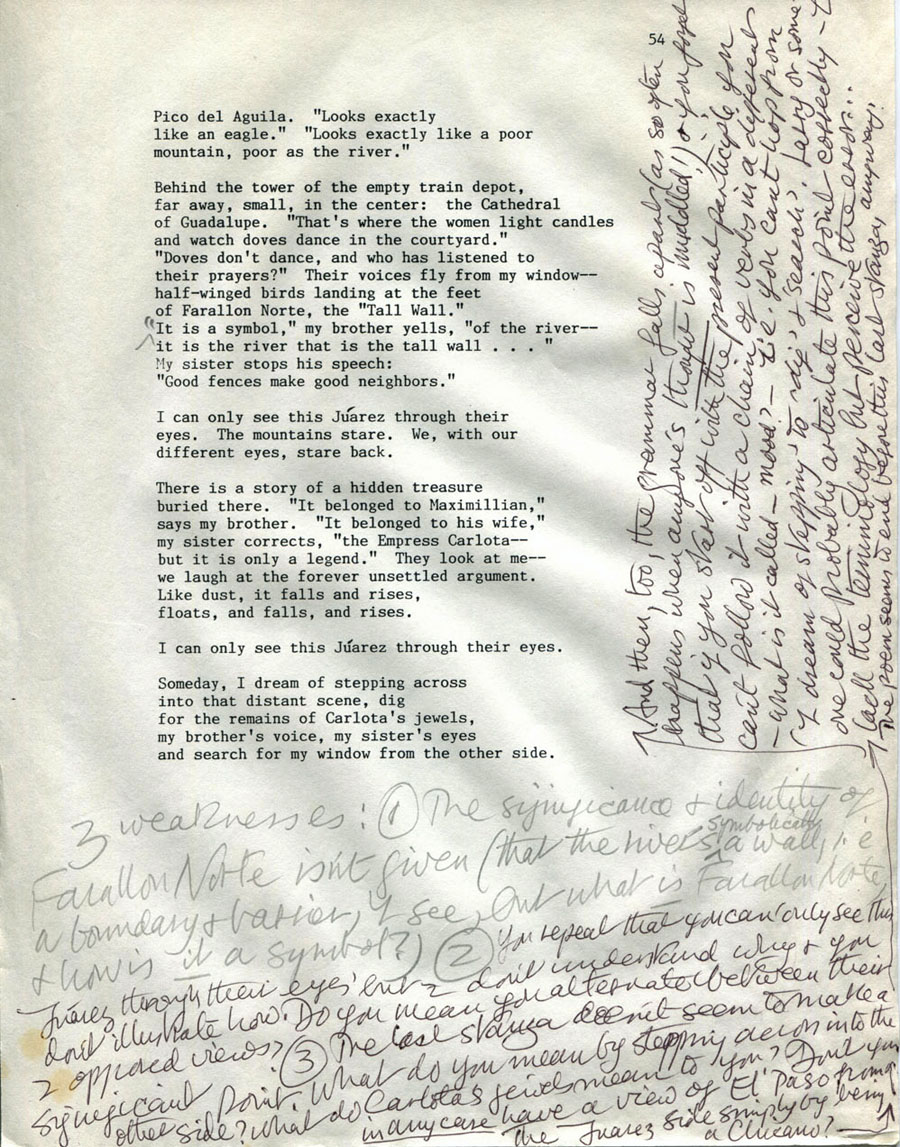 54
Pico del Aguila.  "Looks exactly
like an eagle."  "Looks exactly like a poor
mountain, poor as the river."
Behind the tower of the empty train depot,
far away, small, in the center:  the Cathedral
of Guadalupe.  "That's where the women light candles
and watch doves dance in the courtyard."
"Doves don't dance, and who has listened to
their prayers?"  Their voices fly from my window--
half-winged birds landing at the feet
of Farallon Norte, the "Tall Wall."
"It is a symbol," my brother yells, "of the river--
it is the river that is the tall wall . . . "
My sister stops his speech:
"Good fences make good neighbors."
I can only see this Júarez through their
eyes.  The mountains stare.  We, with our
different eyes, stare back.
There is a story of a hidden treasure
buried there.  "It belonged to Maximillian,"
says my brother.  "It belonged to his wife,"
my sister corrects, "the Empress Carlota--
but it is only a legend."  They look at me--
we laugh at the forever unsettled argument.
Like dust, it falls and rises,
floats, and falls, and rises.
I can only see this Júarez through their eyes.
Someday, I dream of stepping across
into that distant scene, dig
for the remains of Carlota's jewels,
my brother's voice, my sister's eyes
and search for my window from the other side.
3 weaknesses: ① The significance & identity of
Farallon Norte isn't given (that the river's symbolically a wall, i.e
a boundary & barrier, I see, but what is Farallon Norte,
& how is it a symbol?) ② You repeat that you can 'only see this
Júarez through their eyes' but I don't understand why & you
don't illustrate how. Do you mean you alternate between their
2 opposed views? ③ The last stanza doesn't seem to make a
significant point. What do you mean by stepping across into the
other side? What do Carlota's jewels mean to you? Don't you
in any case have a view of El Paso from
the Juarez side simply by being
a Chicano?
And then, too, the grammar falls apart (as so often
happens when anyone's thought is muddled!) if you forget
that if you start off with the present participle you
can't follow it with a chain of verbs in a different
- what is it called - mood? - i.e. you can't hop from
'I dream of stepping' to 'dig' & 'search'. Larry or some-
one could probably articulate this point correctly - I
lack the terminology but perceive the error...
The poem seems to end before this last stanza, anyway.